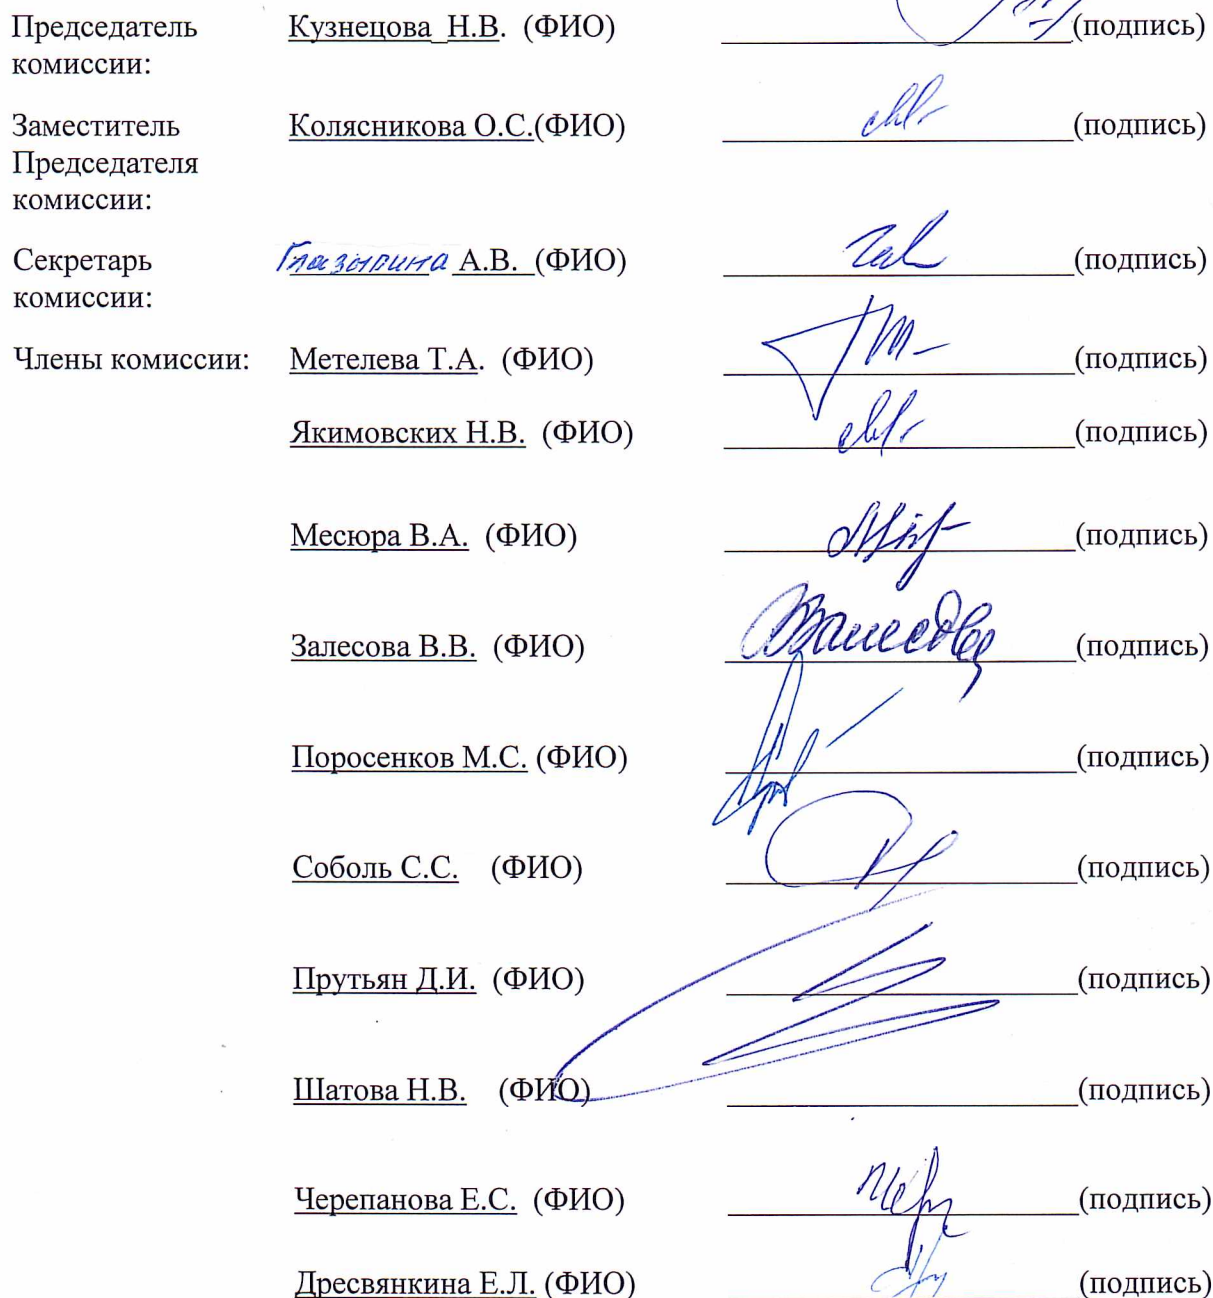 Председатель Кузнецова Н.В. (ФИО) (подпись)
комиссии:
Заместитель Колясникова О.С.(ФИО) (подпись)
Председателя
комиссии:
Секретарь Глазырина А.В. (ФИО) (подпись)
комиссии:
Члены комиссии: Метелева Т.А. (ФИО) (подпись)
Якимовских Н.В. (ФИО) (подпись)
Месюра В.А. (ФИО) (подпись)
Залесова В.В. (ФИО) (подпись)
Поросенков М.С. (ФИО) (подпись)
Соболь С.С. (ФИО) (подпись)
Прутьян Д.И. (ФИО) (подпись)
Шатова Н.В. (ФИО) (подпись)
Черепанова Е.С. (ФИО) (подпись)
Дресвянкина Е.Л. (ФИО) (подпись)